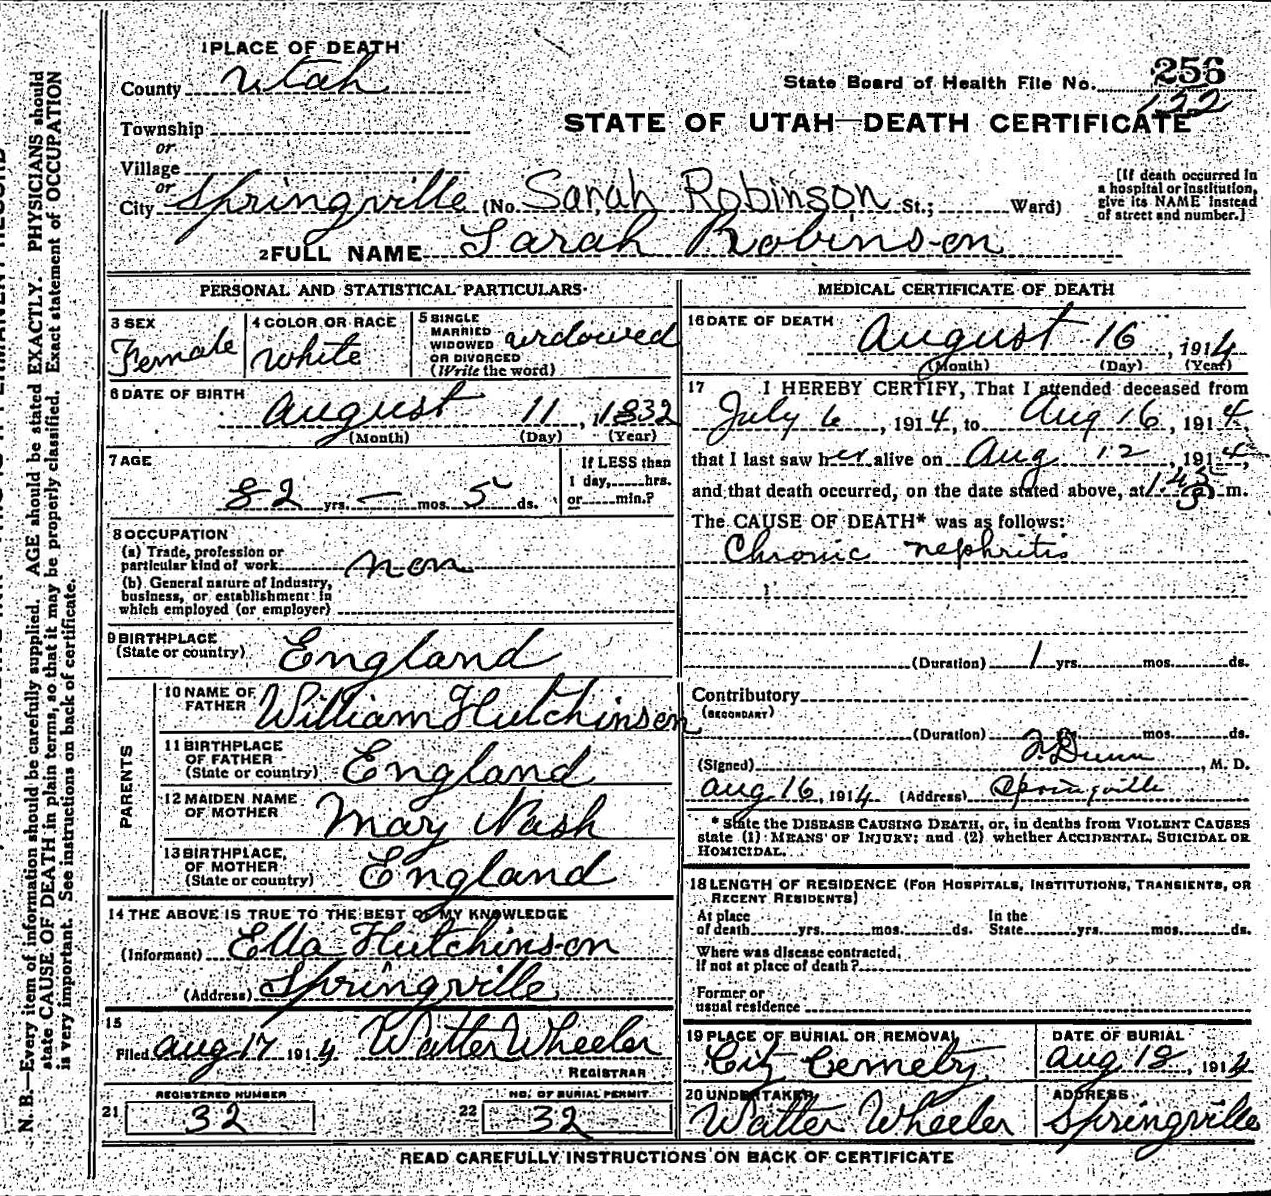 1 PLACE OF DEATH
County Utah
State Board of Health File No. 256
122
STATE OF UTAH—DEATH CERTIFICATE
Township
or
Village
or
City Springville (No. Sarah Robinson St.; Ward)
[If death occurred in
a hospital or institution,
give its NAME instead
of street and number.]
2 FULL NAME Sarah Robinson
PERSONAL AND STATISTICAL PARTICULARS
3 SEX
Female
4 COLOR OR RACE
White
5 SINGLE
MARRIED
WIDOWED
OR DIVORCED
(Write the word)
widowed
6 DATE OF BIRTH
August 11, 1832
(Month) (Day) (Year)
7 AGE
82 yrs. — mos. 5 ds.
If LESS than
1 day, hrs.
or min.?
8 OCCUPATION
(a) Trade, profession or
particular kind of work non
(b) General nature of Industry,
business, or establishment in
which employed (or employer)
9 BIRTHPLACE
(State or country) England
PARENTS
10 NAME OF
FATHER William Hutchinson
11 BIRTHPLACE
OF FATHER
(State or country) England
12 MAIDEN NAME
OF MOTHER Mary Nash
13 BIRTHPLACE,
OF MOTHER
(State or country) England
14 THE ABOVE IS TRUE TO THE BEST OF MY KNOWLEDGE
(Informant) Ella Hutchinson
(Address) Springville
15
Filed Aug 17 1914 Walter Wheeler
REGISTRAR
REGISTERED NUMBER
21 32
NO. OF BURIAL PERMIT
22 32
MEDICAL CERTIFICATE OF DEATH
16 DATE OF DEATH
August 16, 1914
(Month) (Day) (Year)
17 I HEREBY CERTIFY, That I attended deceased from
July 6, 1914, to Aug 16, 1914,
that I last saw her alive on Aug 12, 1914,
and that death occurred, on the date stated above, at m.
The CAUSE OF DEATH* was as follows:
Chronic nephritis
(Duration) 1 yrs. mos. ds.
Contributory
(SECONDARY)
(Duration) mos. ds.
(Signed) Dunn, M. D.
Aug 16, 1914 (Address) Springville
* State the DISEASE CAUSING DEATH, or, in deaths from VIOLENT CAUSES
state (1) MEANS OF INJURY; and (2) whether ACCIDENTAL, SUICIDAL OR
HOMICIDAL.
18 LENGTH OF RESIDENCE (FOR HOSPITALS, INSTITUTIONS, TRANSIENTS, OR
RECENT RESIDENTS)
At place
of death yrs. mos. ds.
In the
State yrs. mos. ds.
Where was disease contracted,
if not at place of death?
Former or
usual residence
19 PLACE OF BURIAL OR REMOVAL
City Cemetry
DATE OF BURIAL
Aug 18, 1914
20 UNDERTAKER
Walter Wheeler
ADDRESS
Springville
READ CAREFULLY INSTRUCTIONS ON BACK OF CERTIFICATE
N. B.—Every item of information should be carefully supplied. AGE should be stated EXACTLY. PHYSICIANS should
state CAUSE OF DEATH in plain terms, so that it may be properly classified. Exact statement of OCCUPATION
is very important. See instructions on back of certificate.